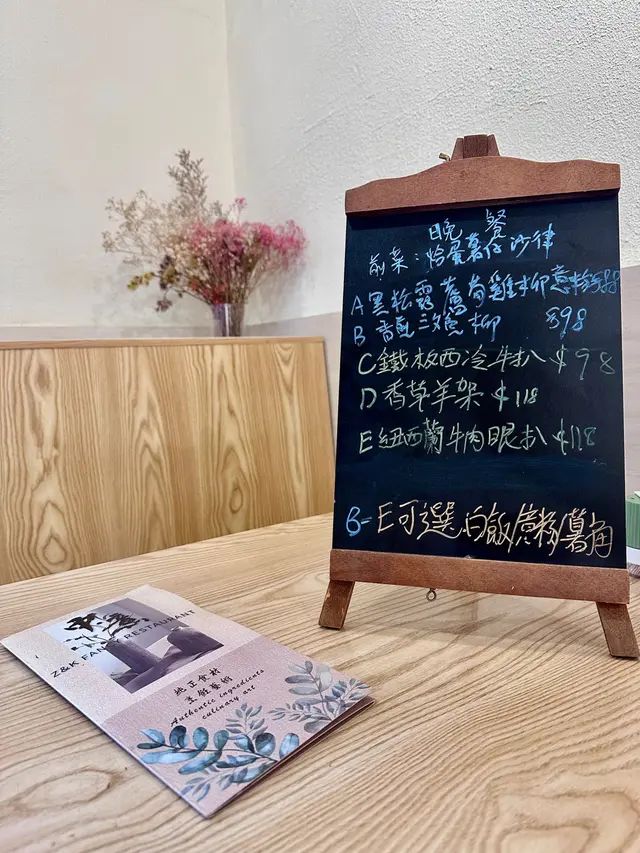 晚 餐
前菜：炀蛋薯仔沙律
A黑松露蘑菇雞柳意粉$88
B 香煎三文魚柳 $98
C鐵板西冷牛扒 $98
D香草羊架 $118
E紐西蘭牛肉眼扒 $118
B-E可選白飯意粉薯角
Z&K FAMILY RESTAURANT
純正食材
烹飪藝術
Authentic ingredients
culinary art